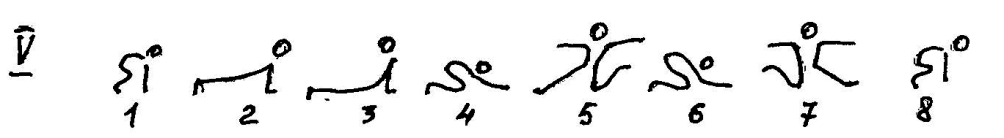 V
1 2 3 4 5 6 7 8